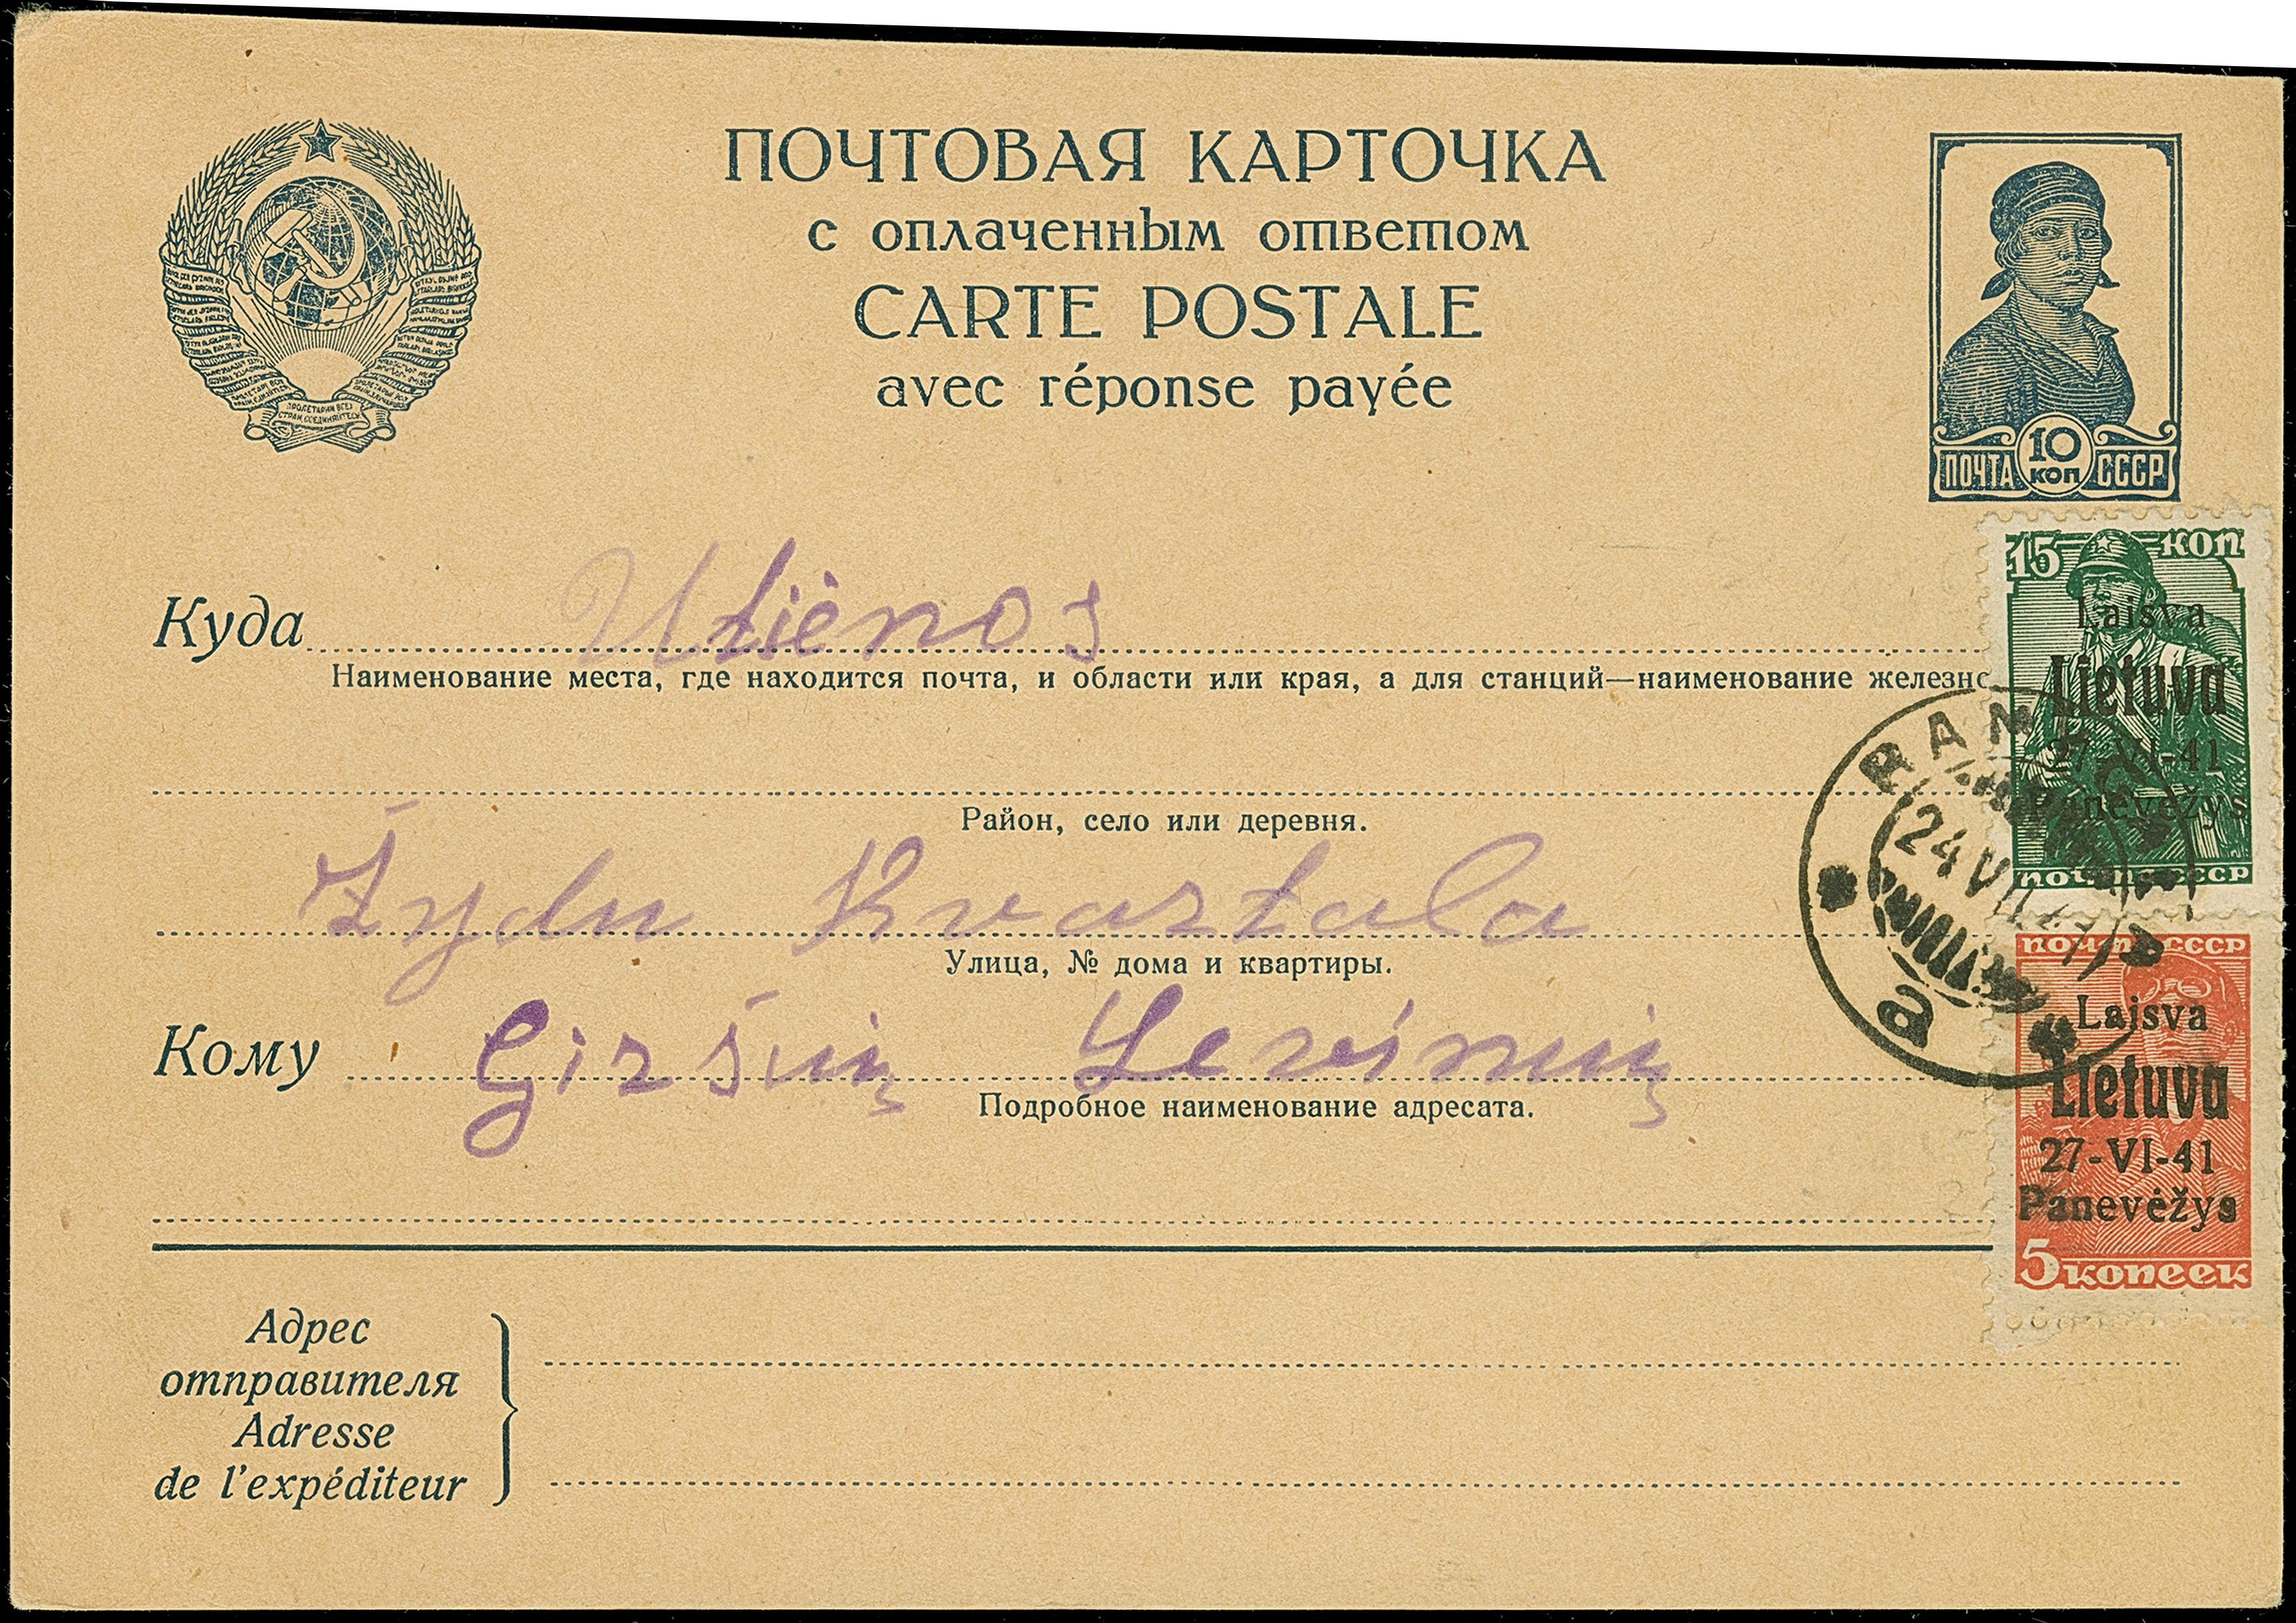 ПОЧТОВАЯ КАРТОЧКА
с оплаченным ответом
CARTE POSTALE
avec réponse payée
10
КОП
ПОЧТА СССР
15 КОП
Laisva
Lietuva
27-VI-41
Panevėžys
ПОЧТА СССР
Куда Utienos
Наименование места, где находится почта, и области или края, а для станций—наименование железно
Район, село или деревня.
Žydu Kvartala
Улица, № дома и квартиры.
Кому Giršui Levinui
Подробное наименование адресата.
24 VII 41
a
ПОЧТА СССР
Laisva
Lietuva
27-VI-41
Panevėžys
5 КОПЕЕК
Адрес
отправителя
Adresse
de l'expéditeur